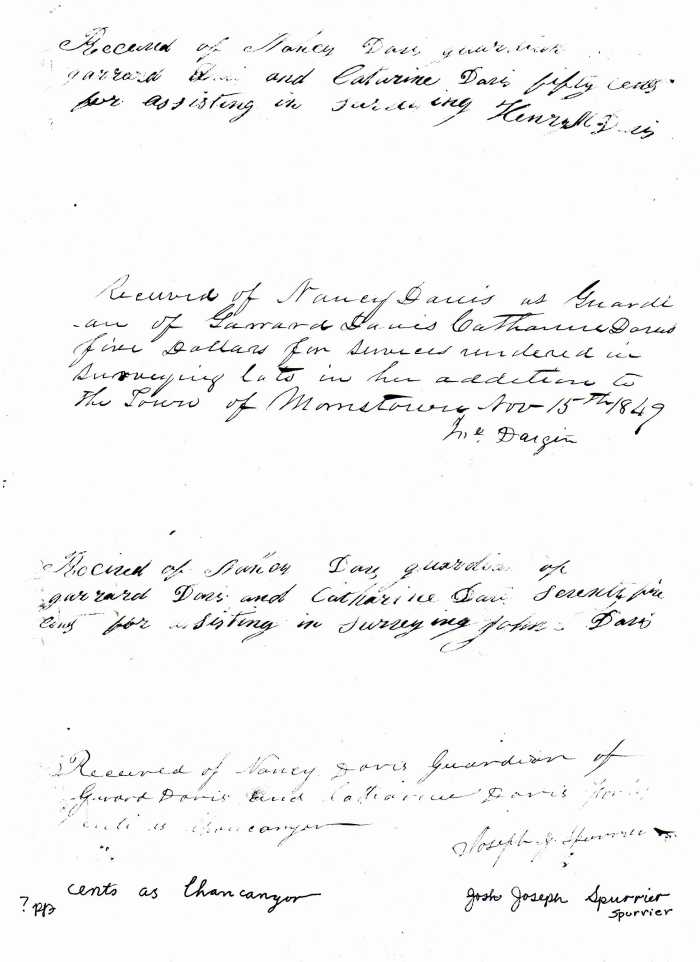 Received of Nancy Davis guardian
garrard Davis and Caturine Davis fifty cents
for assisting in surveying Henry M Davis
Received of Nancy Davis as Guardi
-an of Garrard Davis Catharine Davis
five Dollars for services rendered in
Surveying lots in her addition to
the Town of Morristown Nov 15th 1849
Dargin
Recived of Nancy Davis guardian of
garrard Davis and Catharine Davis Seventy five
cents for assisting in surveying John Davis
Received of Nancy Davis Guardian of
Garrard Davis and Catharine Davis
cents as Chancanyor
Joseph J. Spurrier
cents as Chancanyor
Josh Joseph Spurrier
Spurrier
? pp